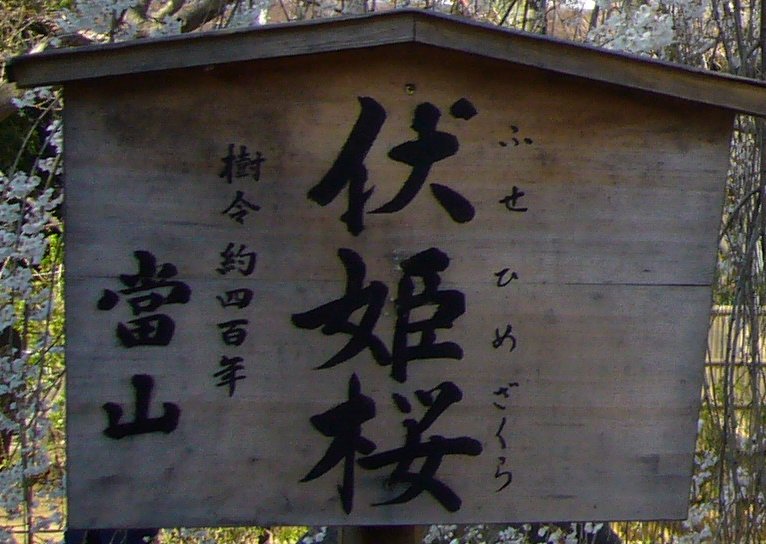 ふせひめざくら
伏姫桜
樹令約四百年
當山